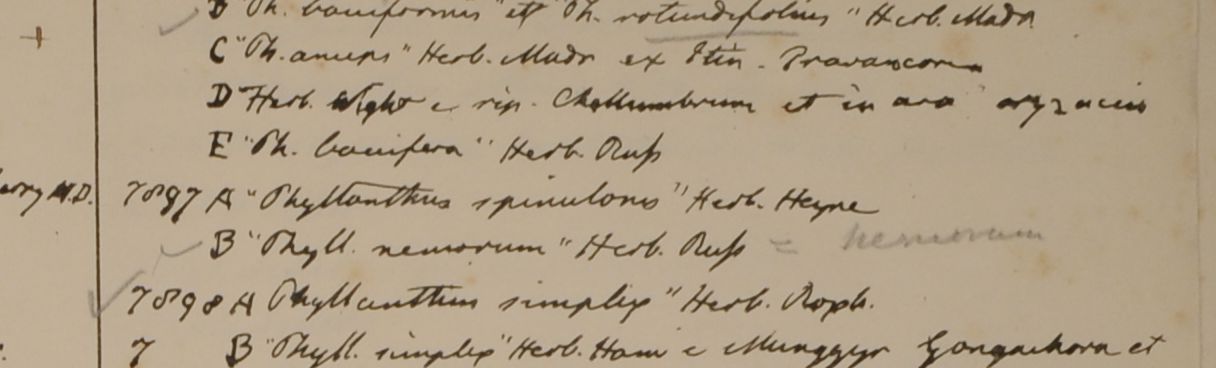 B "Ph. bacciformis" et "Ph. rotundifolius" Herb. Madr.
C "Ph. anceps" Herb. Madr ex Itin. Travancore
D Herb. Wight e rip. Chellumbrum et in arvo oryzaceis
E "Ph. baccifera" Herb. Ruſs
M.D. 7897 A "Phyllanthus spinulosus" Herb. Heyne
B "Phyll. nemorum" Herb. Ruſs = nemorum
7898 A Phyllanthus simplex" Herb. Roxb.
7 B "Phyll. simplex" Herb. Ham e Munggyr Gongachora et